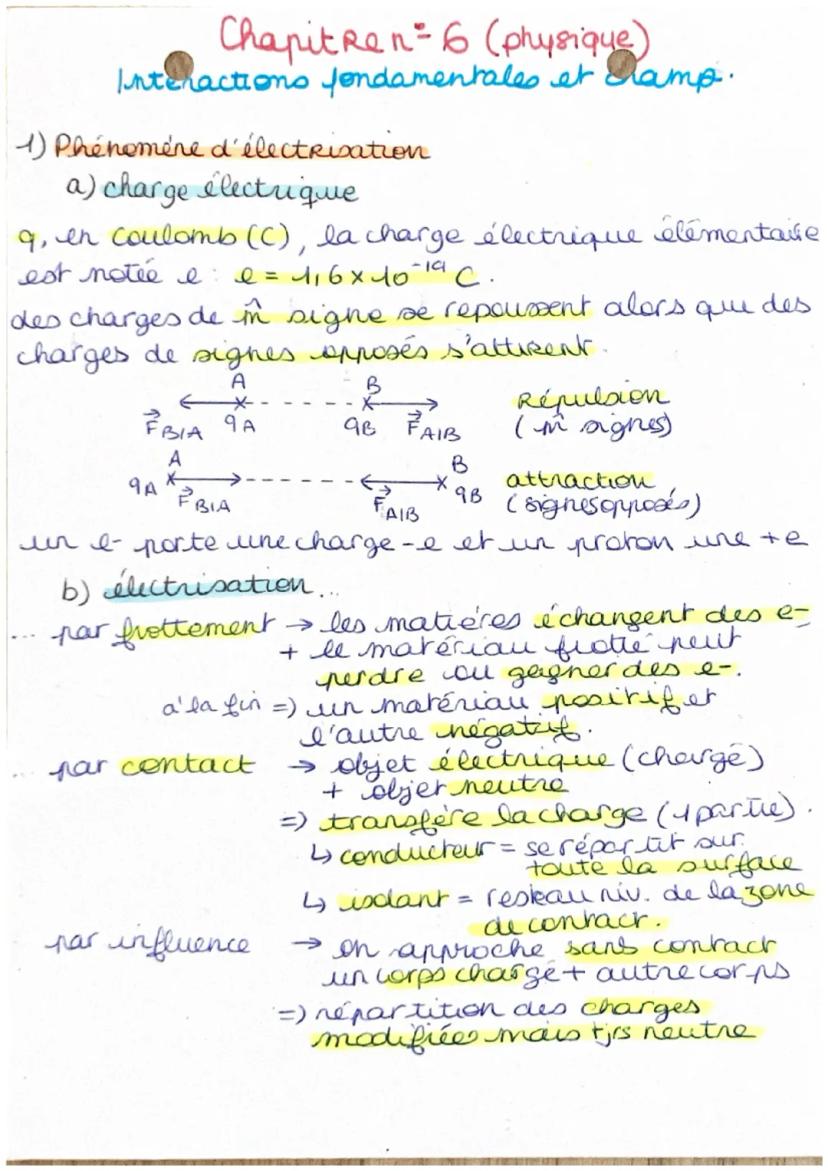 Chapitre n° 6 (physique)
Interactions fondamentales et champ.
1) Phénomène d'électrisation
a) charge électrique
q, en coulomb (C), la charge électrique élémentaire
est notée e : e = 1,6 × 10⁻¹⁹ C.
des charges de m̂ signe se repoussent alors que des
charges de signes opposés s'attirent.
A B
F⃗ B/A qA qB F⃗ A/B
Répulsion
(m̂ signes)
A B
qA F⃗ B/A F⃗ A/B qB
attraction
(signes opposés)
un e- porte une charge -e et un proton une +e
b) électrisation...
... par frottement → les matières échangent des e-
+ le matériau frotté peut
perdre ou gagner des e-.
à la fin => un matériau positif et
l'autre négatif.
... par contact → objet électrique (chargé)
+ objet neutre
=> transfère la charge (1 partie).
↳ conducteur = se répartit sur
toute la surface
↳ isolant = reste au niv. de la zone
de contact.
par influence → on approche sans contact
un corps chargé + autre corps
=> répartition des charges
modifiées mais tjrs neutre